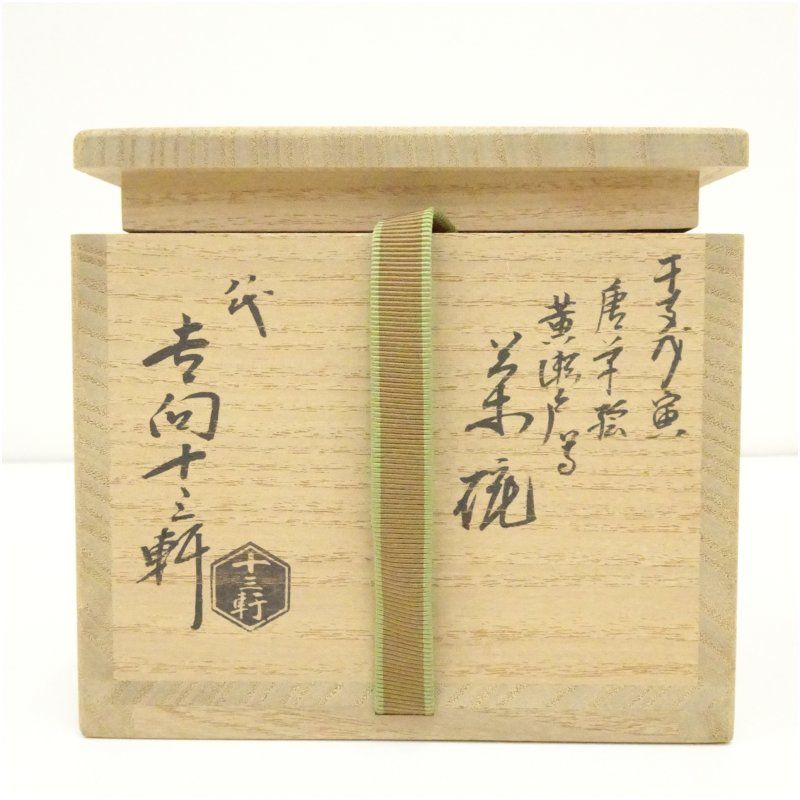 干支戊寅
唐草絵
黄瀬戸写
茶碗
代
吉向十三軒
十三軒